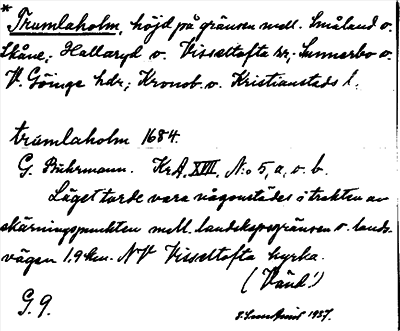 * Trumlaholm, höjd på gränsen mell. Småland o.
Skåne; Hallaryd o. Visseltofta snr; Sunnerbo o.
V. Göinge hdr; Kronob. o. Kristianstads l.
trumlaholm 1684.
G. Buhrmann. KrA, XVIII, N:o 5, a, o. b.
Läget torde vara någonstädes i trakten av
skärningspunkten mell. landskapsgränsen o. lands-
vägen 1.9 km. NV Visseltofta kyrka.
(Vänd!)
G. 9. 1937.